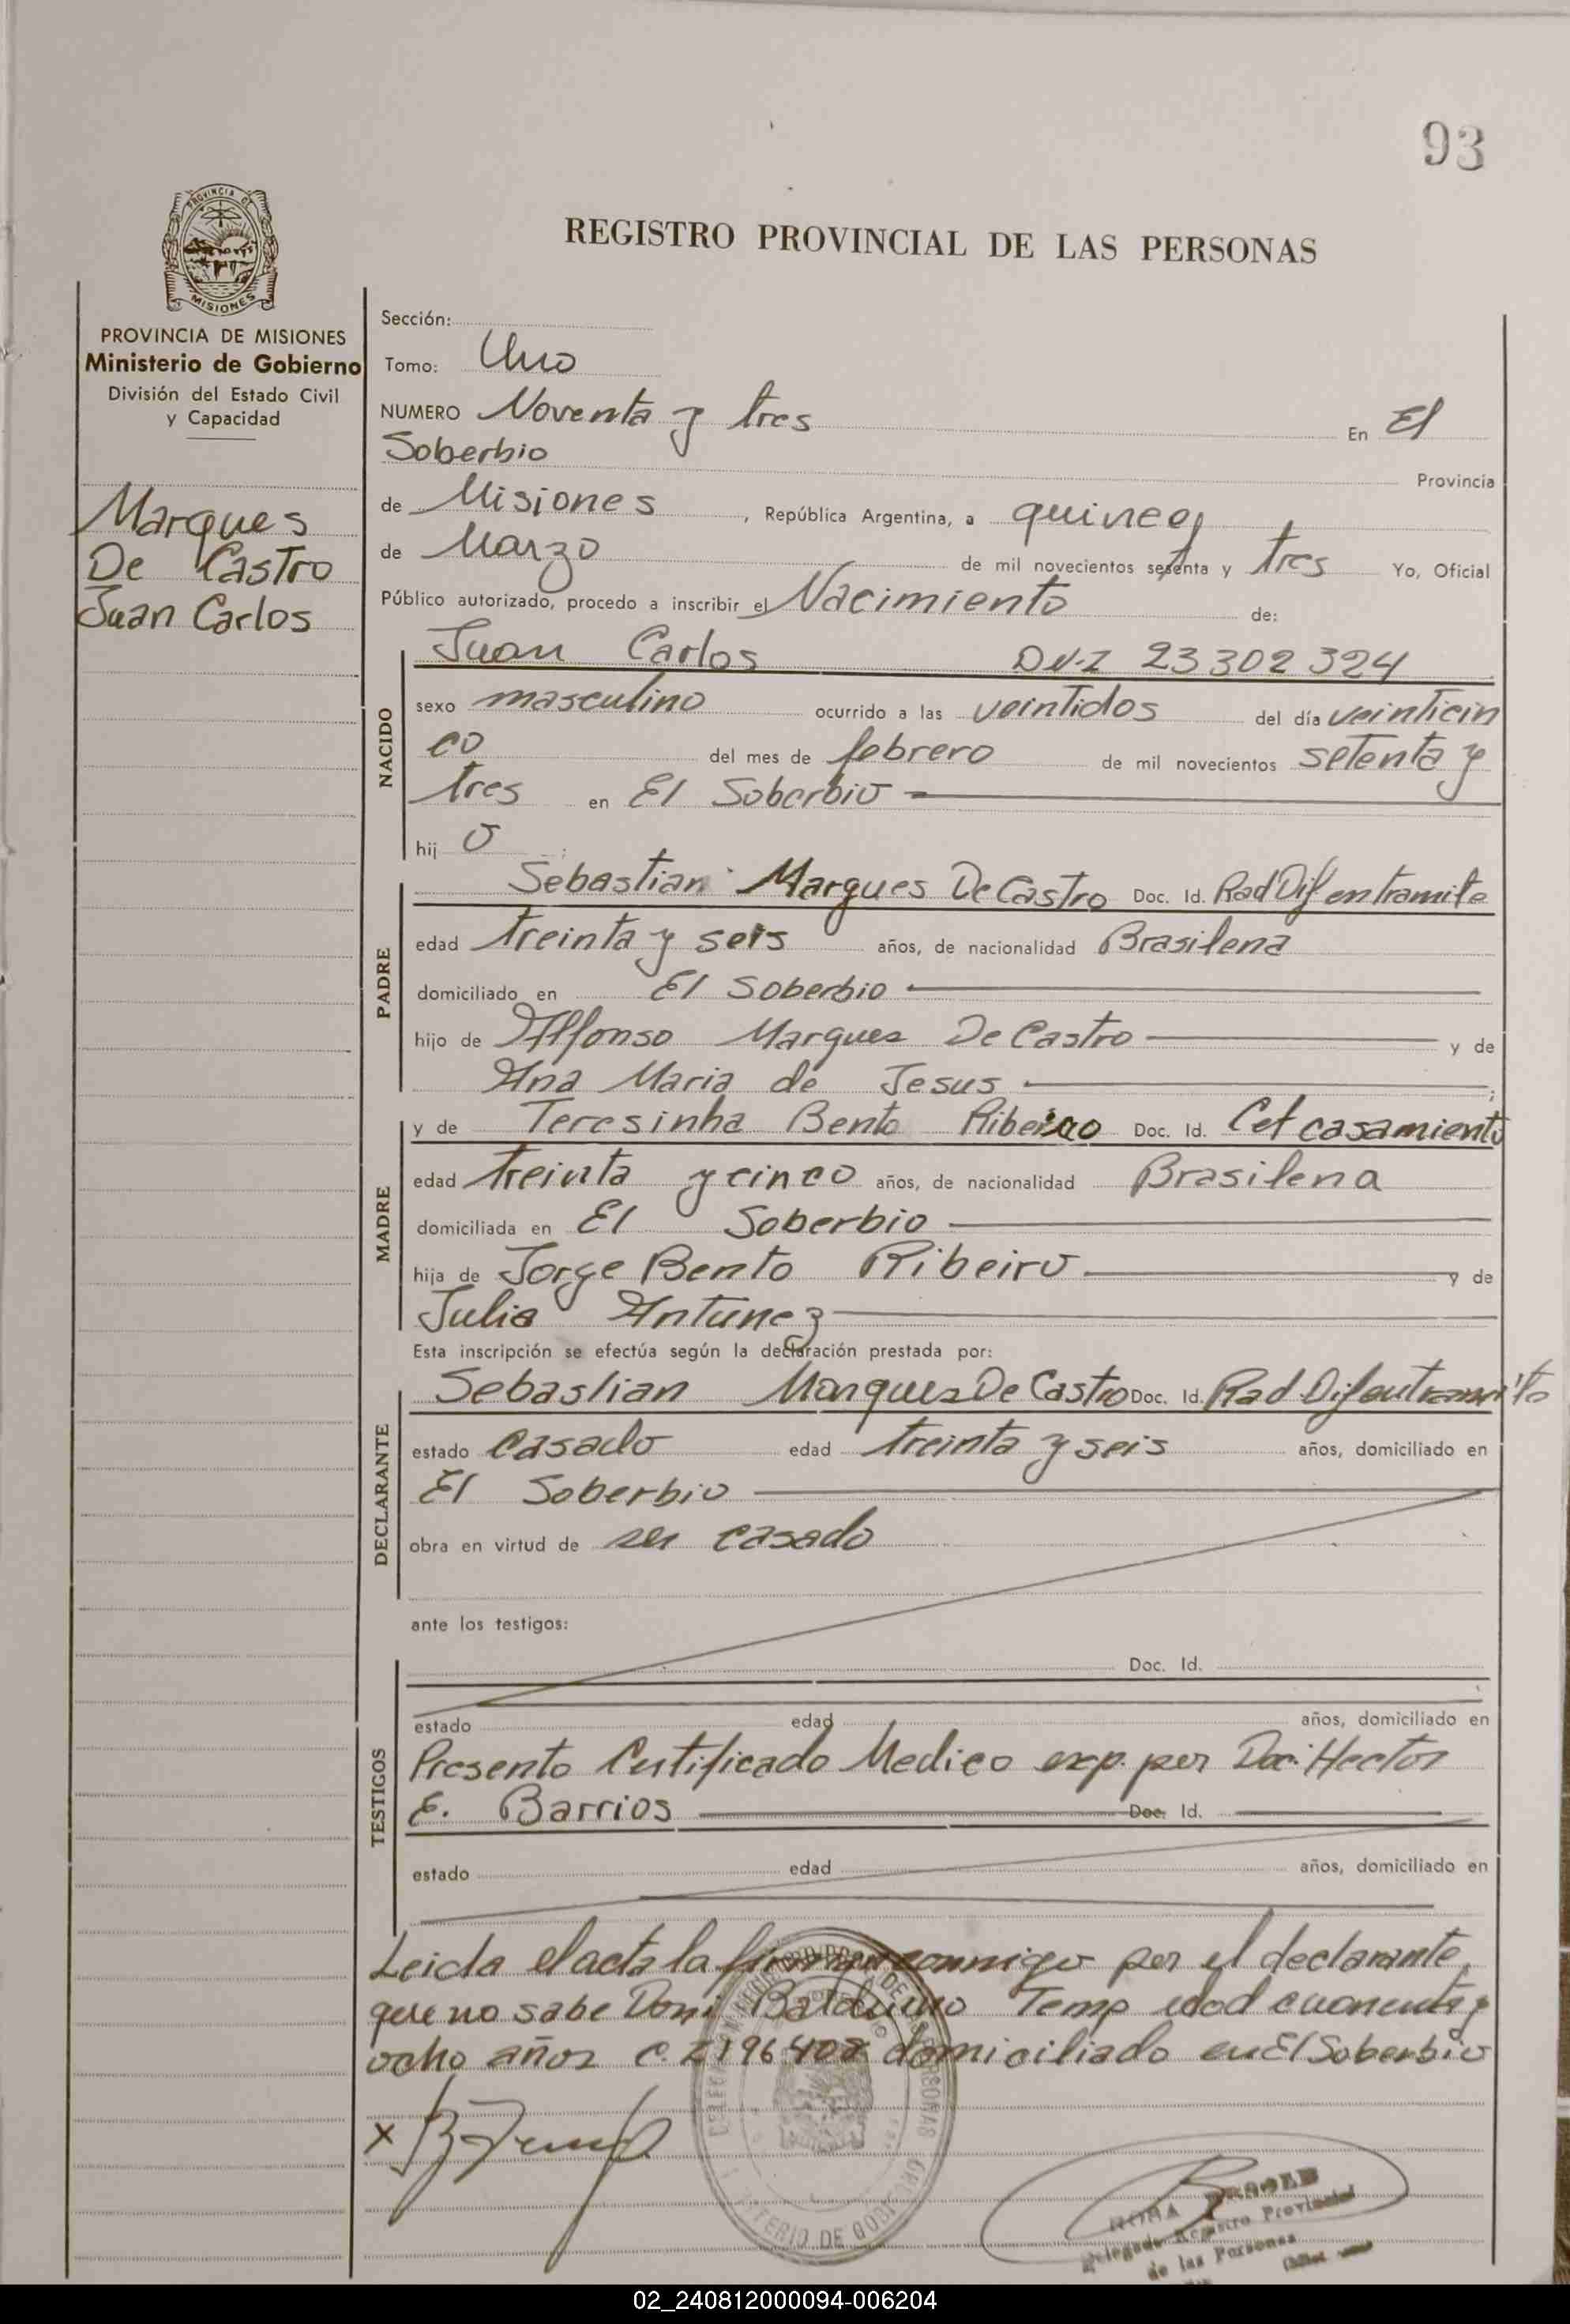 93
REGISTRO PROVINCIAL DE LAS PERSONAS
PROVINCIA DE
MISIONES
PROVINCIA DE MISIONES
Ministerio de Gobierno
División del Estado Civil
y Capacidad
Marques
De Castro
Juan Carlos
Sección:
Tomo: Uno
NUMERO Noventa y tres En El
Soberbio Provincia
de Misiones, República Argentina, a quince
de Marzo de mil novecientos setenta y tres Yo, Oficial
Público autorizado, procedo a inscribir el Nacimiento de:
NACIDO
Juan Carlos DN.I 23302324
sexo masculino ocurrido a las veintidos del día veinticin
co del mes de febrero de mil novecientos setenta y
tres en El Soberbio
hij o :
PADRE
Sebastian Marques De Castro Doc. Id. Rad Dif en tramite
edad treinta y seis años, de nacionalidad Brasilena
domiciliado en El Soberbio
hijo de Alfonso Marques De Castro y de
Ana Maria de Jesus ;
MADRE
y de Teresinha Bento Ribeiro Doc. Id. Cet casamiento
edad treinta y cinco años, de nacionalidad Brasilena
domiciliada en El Soberbio
hija de Jorge Bento Ribeiro y de
Julia Antunez
Esta inscripción se efectúa según la declaración prestada por:
DECLARANTE
Sebastian Marques De Castro Doc. Id. Rad Dif en tramite
estado casado edad treinta y seis años, domiciliado en
El Soberbio
obra en virtud de ser casado
ante los testigos:
TESTIGOS
Doc. Id.
estado edad años, domiciliado en
Presento Certificado Medico exp. por Doc. Hector
E. Barrios Doc. Id.
estado edad años, domiciliado en
Leida el acta la firma conmigo por el declarante,
que no sabe Don Balduino Temp edad cuarenta y
ocho años C. I 196.408 domiciliado en El Soberbio
x B Temp
Delegado Registro Provincial
de las Personas
02_240812000094-006204